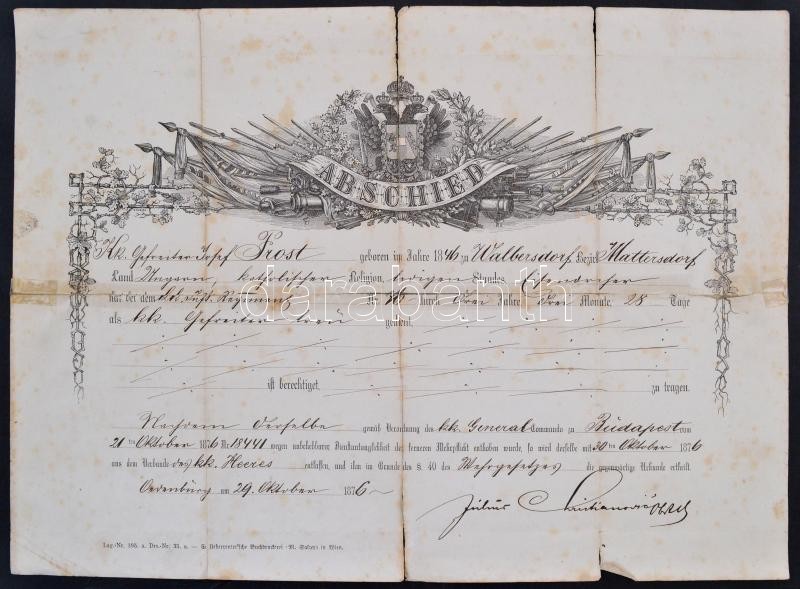 ABSCHIED
Kk. Gefreiter Josef Frost geboren im Jahre 1846 zu Walbersdorf Bezirk Mattersdorf
Land Ungarn, katholischer Religion, ledigen Standes,
hat bei dem k.k. Inft. Regiment Nr. durch Drei Jahre Drei Monate 28 Tage
als kk. Gefreiter treu gedient,
ist berechtiget, zu tragen.
Nachdem Derselbe gemäß Verordnung des kk. General Commando zu Budapest vom
21ten Oktober 1876 Nr. 18441 wegen unbehebbarer Diensttauglichkeit der ferneren Wehrpflicht enthoben wurde, so wird derselbe mit 30ten Oktober 1876
aus dem Verbande des kk. Heeres entlassen, und ihm im Grunde des §. 40 des Wehrgesetzes die gegenwärtige Urkunde ertheilt.
Oedenburg am 29. Oktober 1876
Julius
Lag.-Nr. 195. a. Drs.-Nr. 33. a. — Buchdruckerei (M. Salzer) in Wien.
darabanth